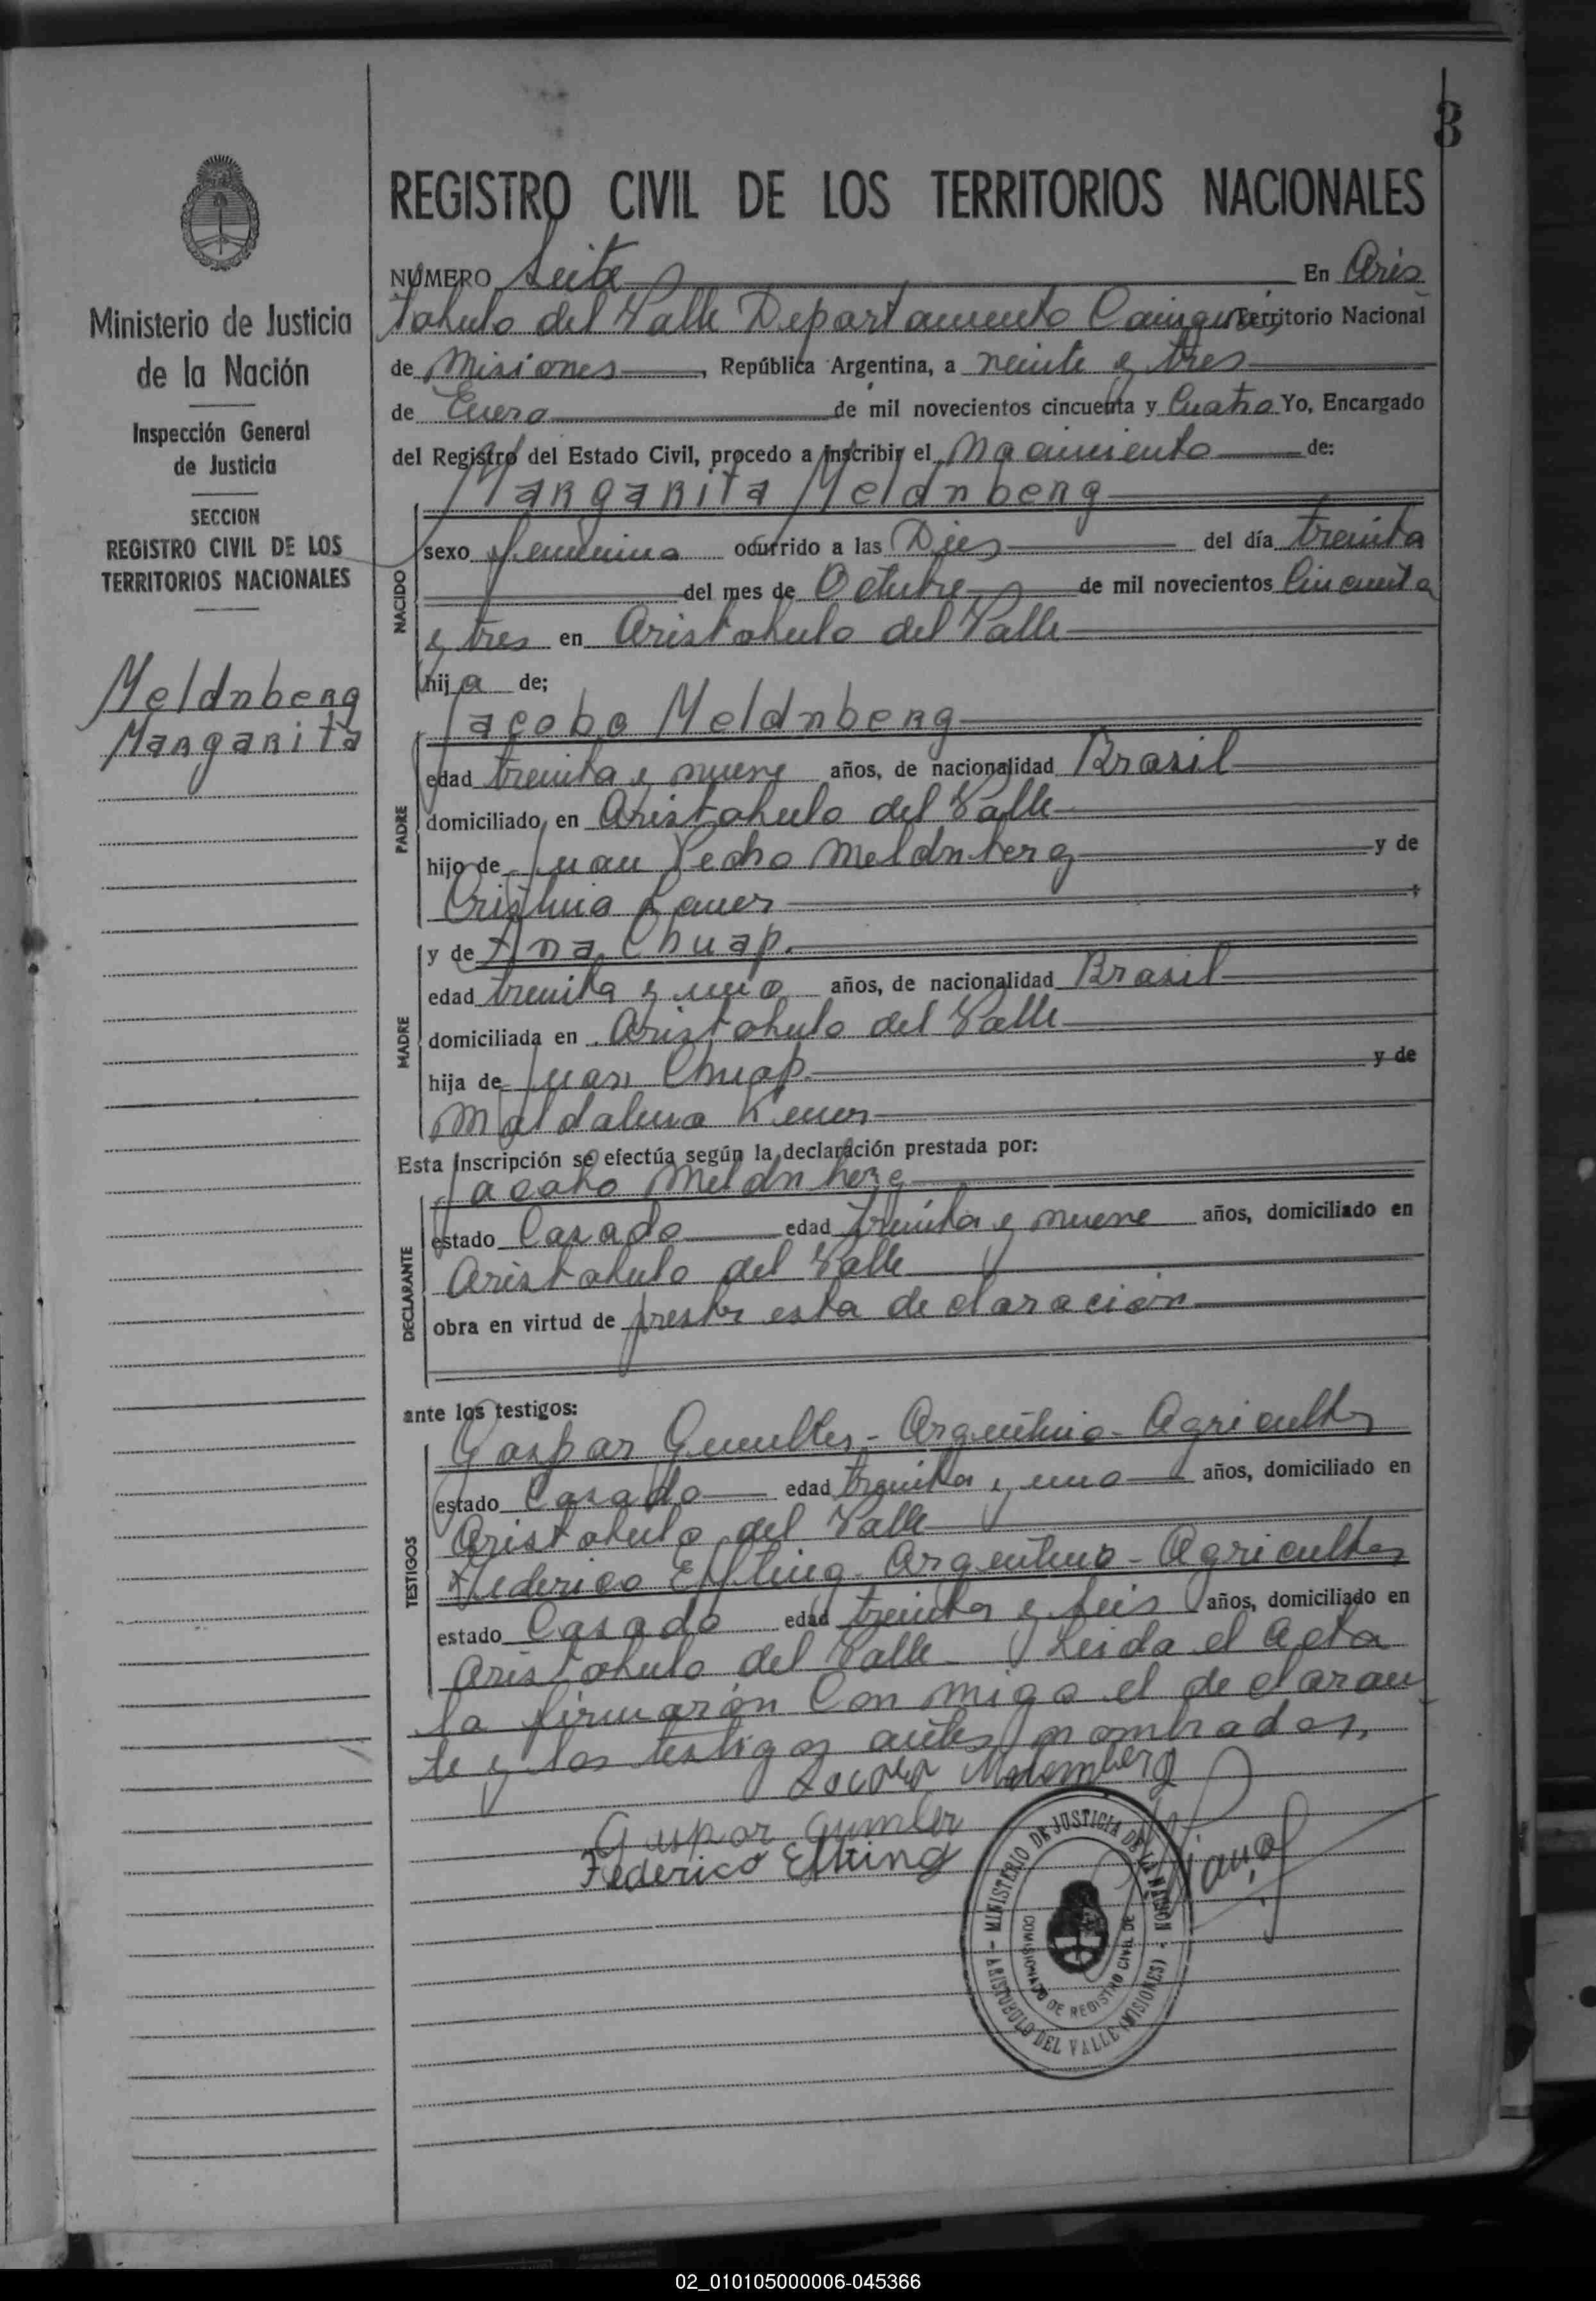 3
REGISTRO CIVIL DE LOS TERRITORIOS NACIONALES
NUMERO Seite En Aris
tobulo del Valle Departamento Cainguas Territorio Nacional
de Misiones, República Argentina, a veinte y tres
de Enero de mil novecientos cincuenta y Cuatro Yo, Encargado
del Registro del Estado Civil, procedo a inscribir el Nacimiento de:
Margarita Meldnberg
sexo femenino ocurrido a las Dies del día treinta
del mes de Octubre de mil novecientos Cincuenta
y tres en Aristobulo del Valle
hija de;
NACIDO
Jacobo Meldnberg
edad treinta y nueve años, de nacionalidad Brasil
domiciliado en Aristobulo del Valle
hijo de Juan Pedro Meldnberg y de
Cristina Lauer
PADRE
y de Ana Chuap.
edad treinta y uno años, de nacionalidad Brasil
domiciliada en Aristobulo del Valle
hija de Juan Chuap. y de
Maldalena
MADRE
Esta inscripción se efectúa según la declaración prestada por:
Jacobo Meldnberg
estado Casado edad treinta y nueve años, domiciliado en
Aristobulo del Valle
obra en virtud de prestar esta declaración
DECLARANTE
ante los testigos:
Gaspar - Argentino - Agricultor
estado Casado edad treinta y uno años, domiciliado en
Aristobulo del Valle
Federico Efting - Argentino - Agricultor
estado Casado edad treinta y seis años, domiciliado en
Aristobulo del Valle - Leida el Acta
TESTIGOS
la firmarón Con migo el declaran
te y los testigos antes nombrados,
Federico Efting
MINISTERIO DE JUSTICIA DE LA NACION
COMISIONADO DE REGISTRO CIVIL DE
ARISTOBULO DEL VALLE (MISIONES)
Ministerio de Justicia
de la Nación
Inspección General
de Justicia
SECCION
REGISTRO CIVIL DE LOS
TERRITORIOS NACIONALES
Meldnberg
Margarita
02_010105000006-045366